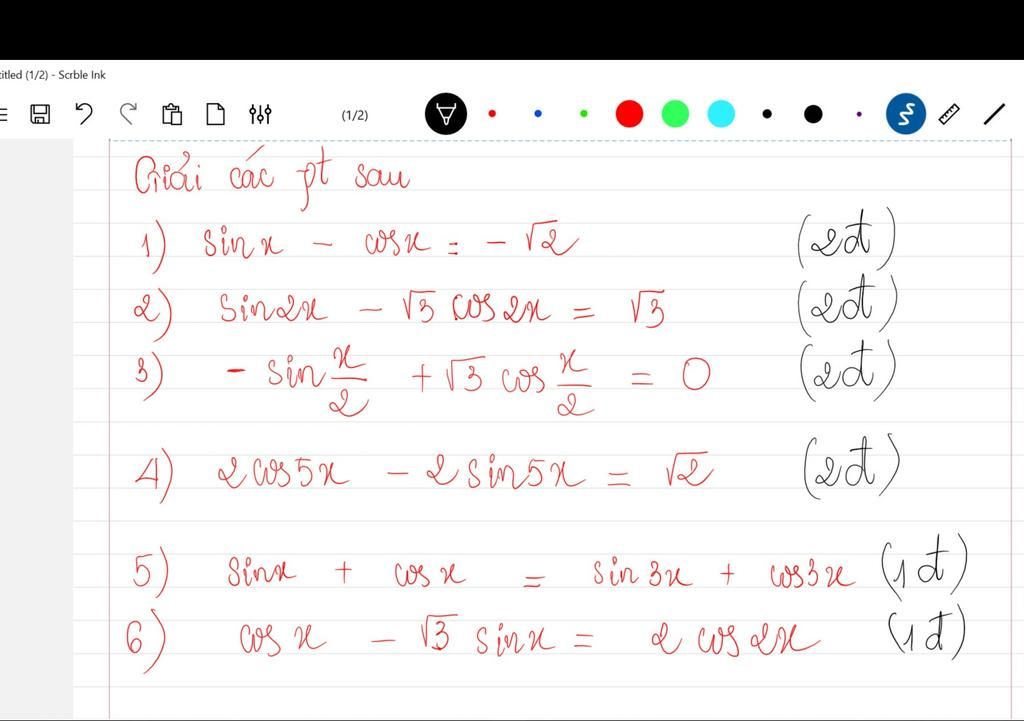 titled (1/2) - Scrble Ink
(1/2)
Giải các pt sau
1) sinx - cosx = - √2 (2đ)
2) sin2x - √3 cos2x = √3 (2đ)
3) - sin x/2 + √3 cos x/2 = 0 (2đ)
4) 2cos5x - 2sin5x = √2 (2đ)
5) sinx + cosx = sin3x + cos3x (1đ)
6) cosx - √3 sinx = 2 cos2x (1đ)